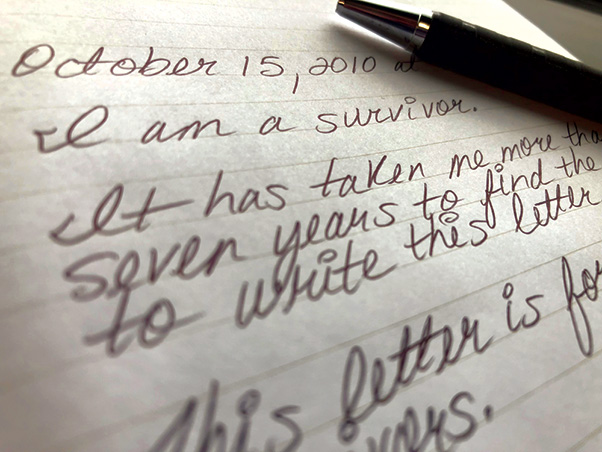 October 15, 2010 at
I am a survivor.
It has taken me more
seven years to find the
to write this letter
This letter is